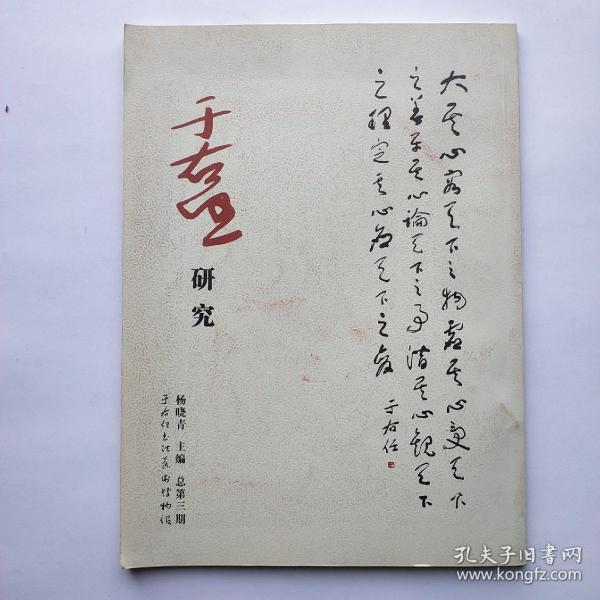 大其心容天下之物虛其心受天下
之善平其心論天下之事潛其心觀天下
之理定其心應天下之變
于右任
于右任
研究
杨晓青 主编 总第三期
于右任書法藝術博物館
孔夫子旧书网
www.kongfz.com